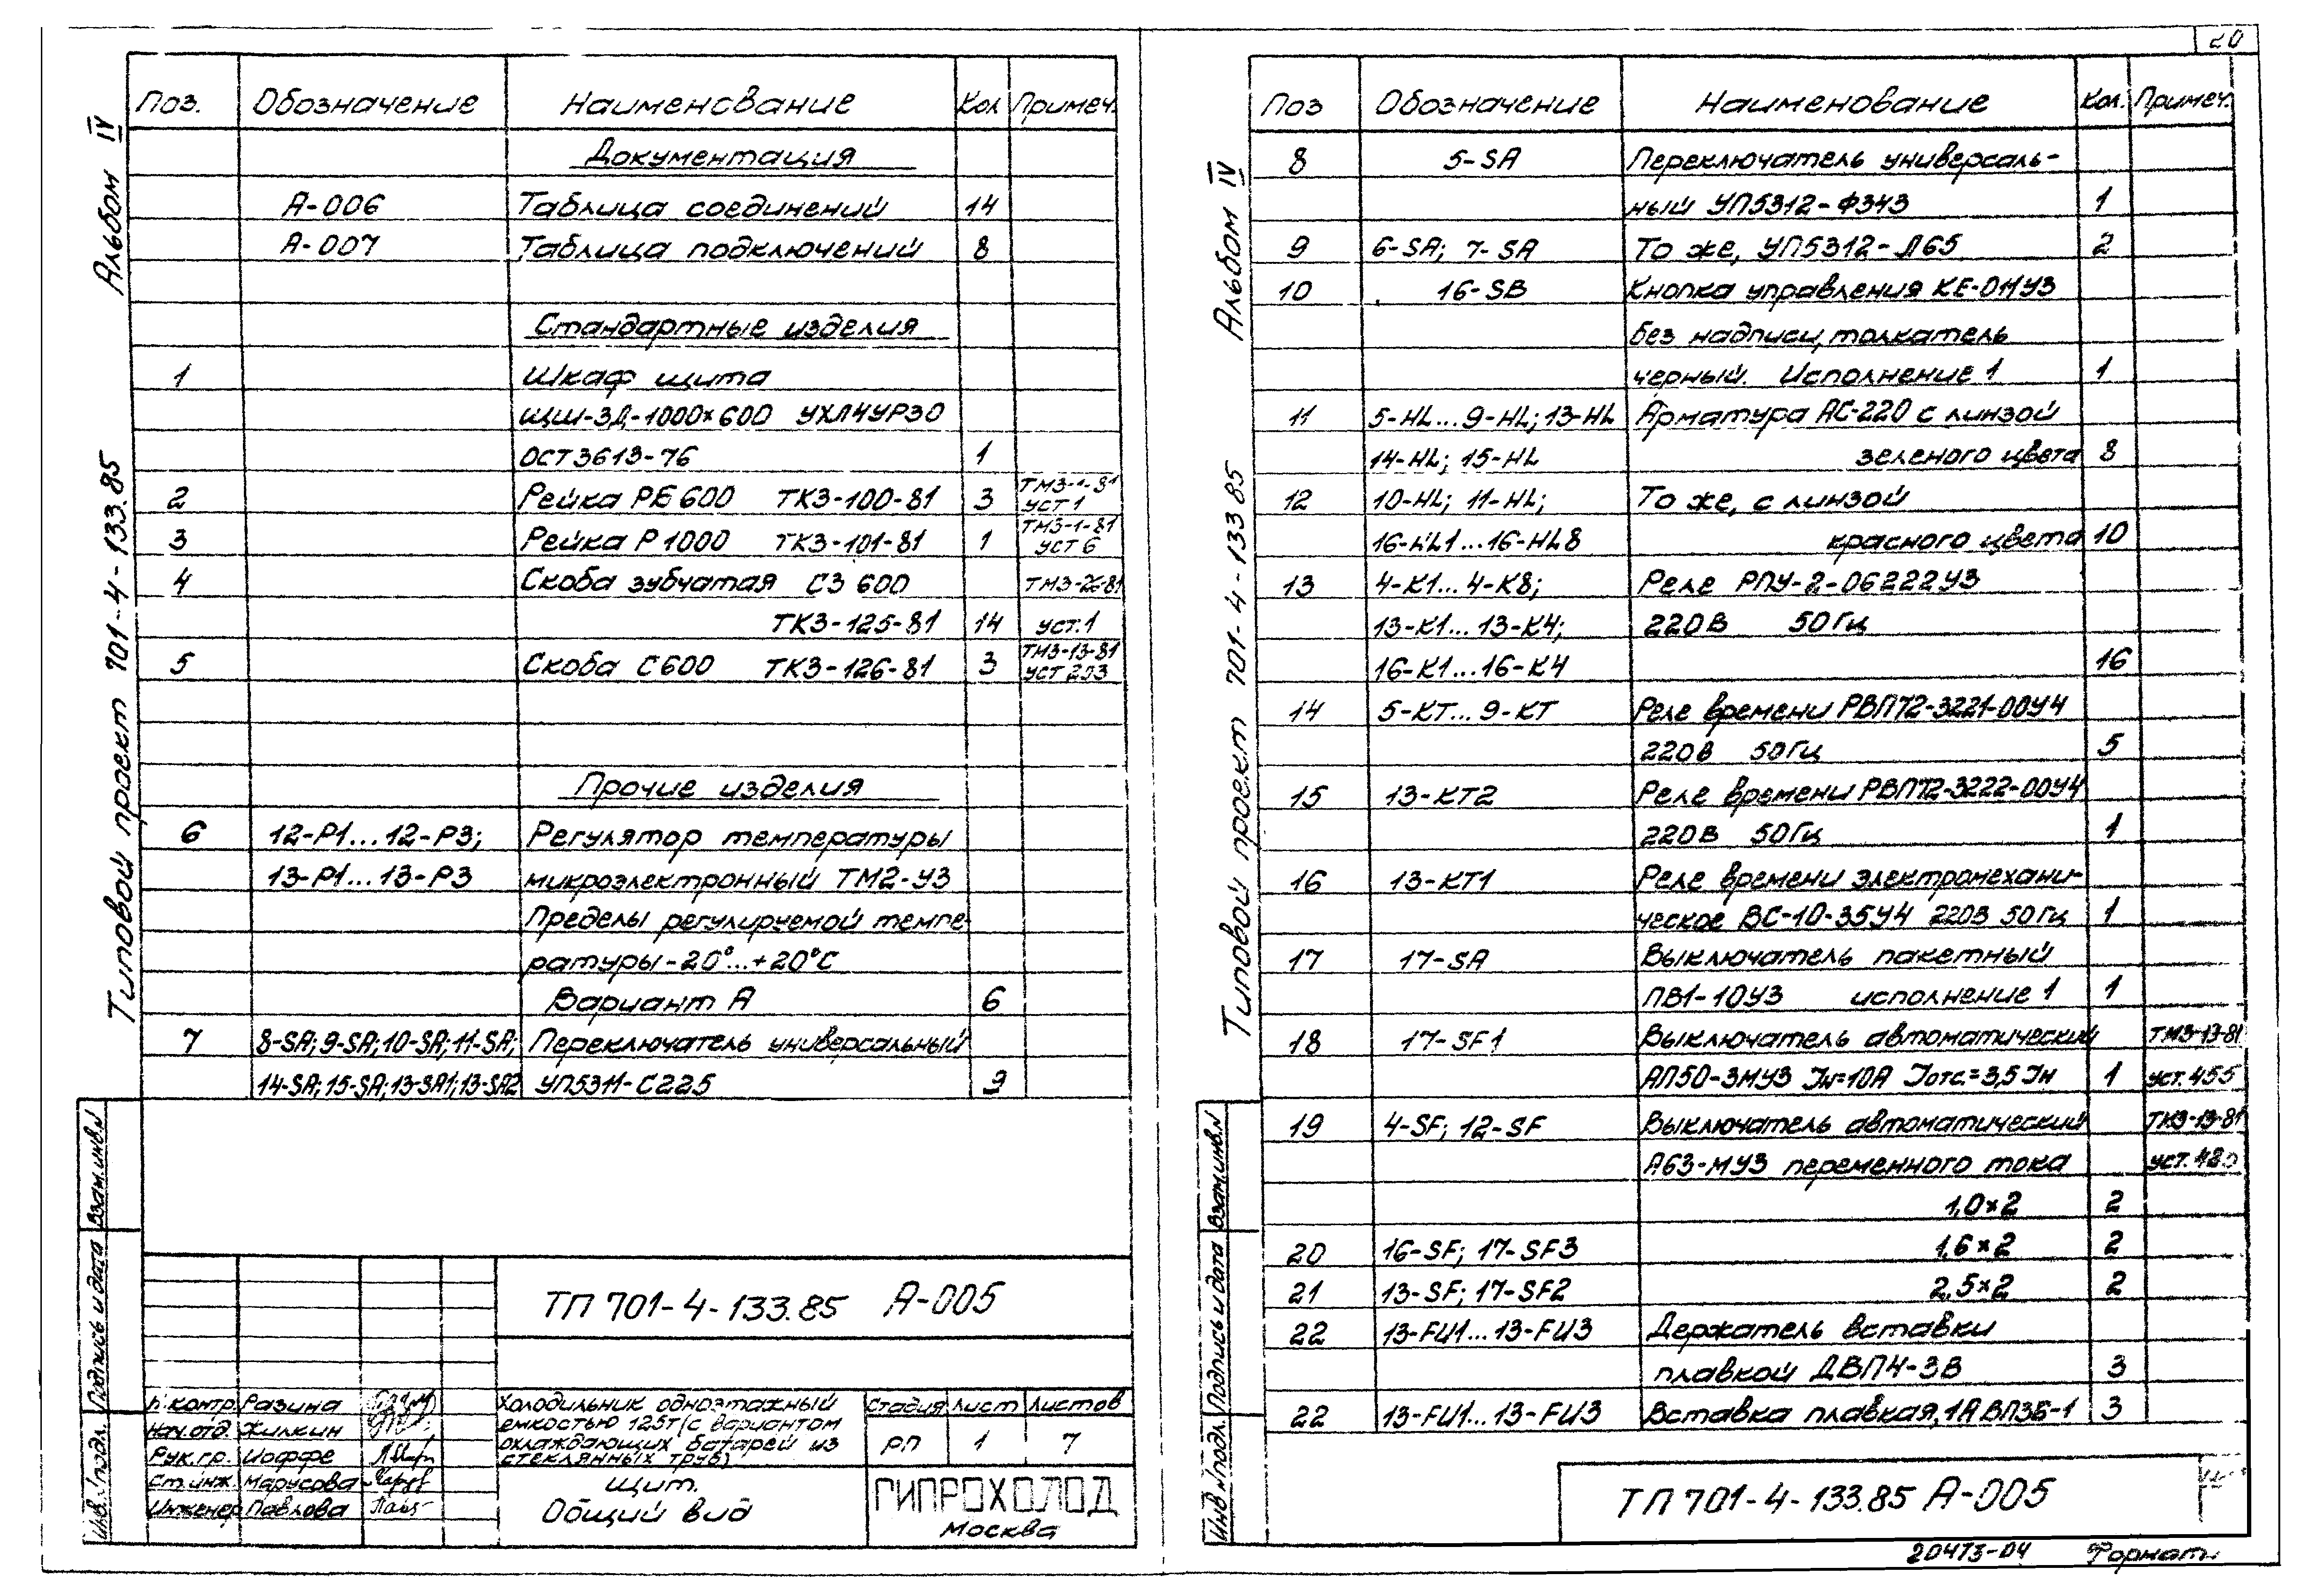 20
Альбом IV
Типовой проект 701-4-133.85
Поз. Обозначение Наименование Кол Примеч.
Документация
А-006 Таблица соединений 14
А-007 Таблица подключений 8
Стандартные изделия
1 Шкаф щита
ЩШ-ЗД-1000×600 УХЛ4УР30
ОСТ3613-76 1
2 Рейка РБ600 ТК3-100-81 3 ТМ3-1-81
уст 1
3 Рейка Р1000 ТК3-101-81 1 ТМ3-1-81
уст 6
4 Скоба зубчатая СЗ 600
ТК3-125-81 14 уст.1
5 Скоба С600 ТК3-126-81 3 ТМ3-13-81
уст 203
Прочие изделия
6 12-Р1...12-Р3; Регулятор температуры
13-Р1...13-Р3 микроэлектронный ТМ2-У3
Пределы регулируемой темпе-
ратуры -20°...+20°С
Вариант А 6
7 8-SA; 9-SA; 10-SA; 11-SA; Переключатель универсальный
14-SA; 15-SA; 13-SA1; 13-SA2 УП5311-С225 9
Взам.инв.N
Подпись и дата
Инв.N подл.
ТП 701-4-133.85 А-005
Н.контр. Разина
Нач.отд. Жилкин
Рук.гр. Иоффе
Ст.инж. Марусова
Инженер Павлова
Холодильник одноэтажный
емкостью 125т (с вариантом
охлаждающих батарей из
стеклянных труб)
Стадия Лист Листов
РП 1 7
Щит.
Общий вид
ГИПРОХОЛОД
Москва
Альбом IV
Типовой проект 701-4-133 85
Поз Обозначение Наименование Кол. Примеч.
8 5-SA Переключатель универсаль-
ный УП5312-Ф343 1
9 6-SA; 7-SA То же, УП5312-Л65 2
10 16-SB Кнопка управления КЕ-011У3
без надписи, толкатель
черный. Исполнение 1 1
11 5-HL...9-HL; 13-HL Арматура АС-220 с линзой
14-HL; 15-HL зеленого цвета 8
12 10-HL; 11-HL; То же, с линзой
16-HL1...16-HL8 красного цвета 10
13 4-К1...4-К8; Реле РПУ-2-06222У3
13-К1...13-К4; 220В 50Гц
16-К1...16-К4 16
14 5-КТ...9-КТ Реле времени РВП72-3221-00У4
220В 50Гц 5
15 13-КТ2 Реле времени РВП72-3222-00У4
220В 50Гц 1
16 13-КТ1 Реле времени электромехани-
ческое ВС-10-35У4 220В 50Гц 1
17 17-SA Выключатель пакетный
ПВ1-10У3 исполнение 1 1
18 17-SF1 Выключатель автоматический ТМ3-13-81
АП50-3МУ3 Iн=10А Iотс.=3,5Iн 1 уст.455
19 4-SF; 12-SF Выключатель автоматический ТК3-13-81
А63-МУ3 переменного тока уст.480
1,0×2 2
20 16-SF; 17-SF3 1,6×2 2
21 13-SF; 17-SF2 2,5×2 2
22 13-FU1...13-FU3 Держатель вставки
плавкой ДВП4-3В 3
22 13-FU1...13-FU3 Вставка плавкая, 1А ВП3Б-1 3
Взам.инв.N
Подпись и дата
Инв.N подл.
ТП 701-4-133.85 А-005
20473-04 Формат